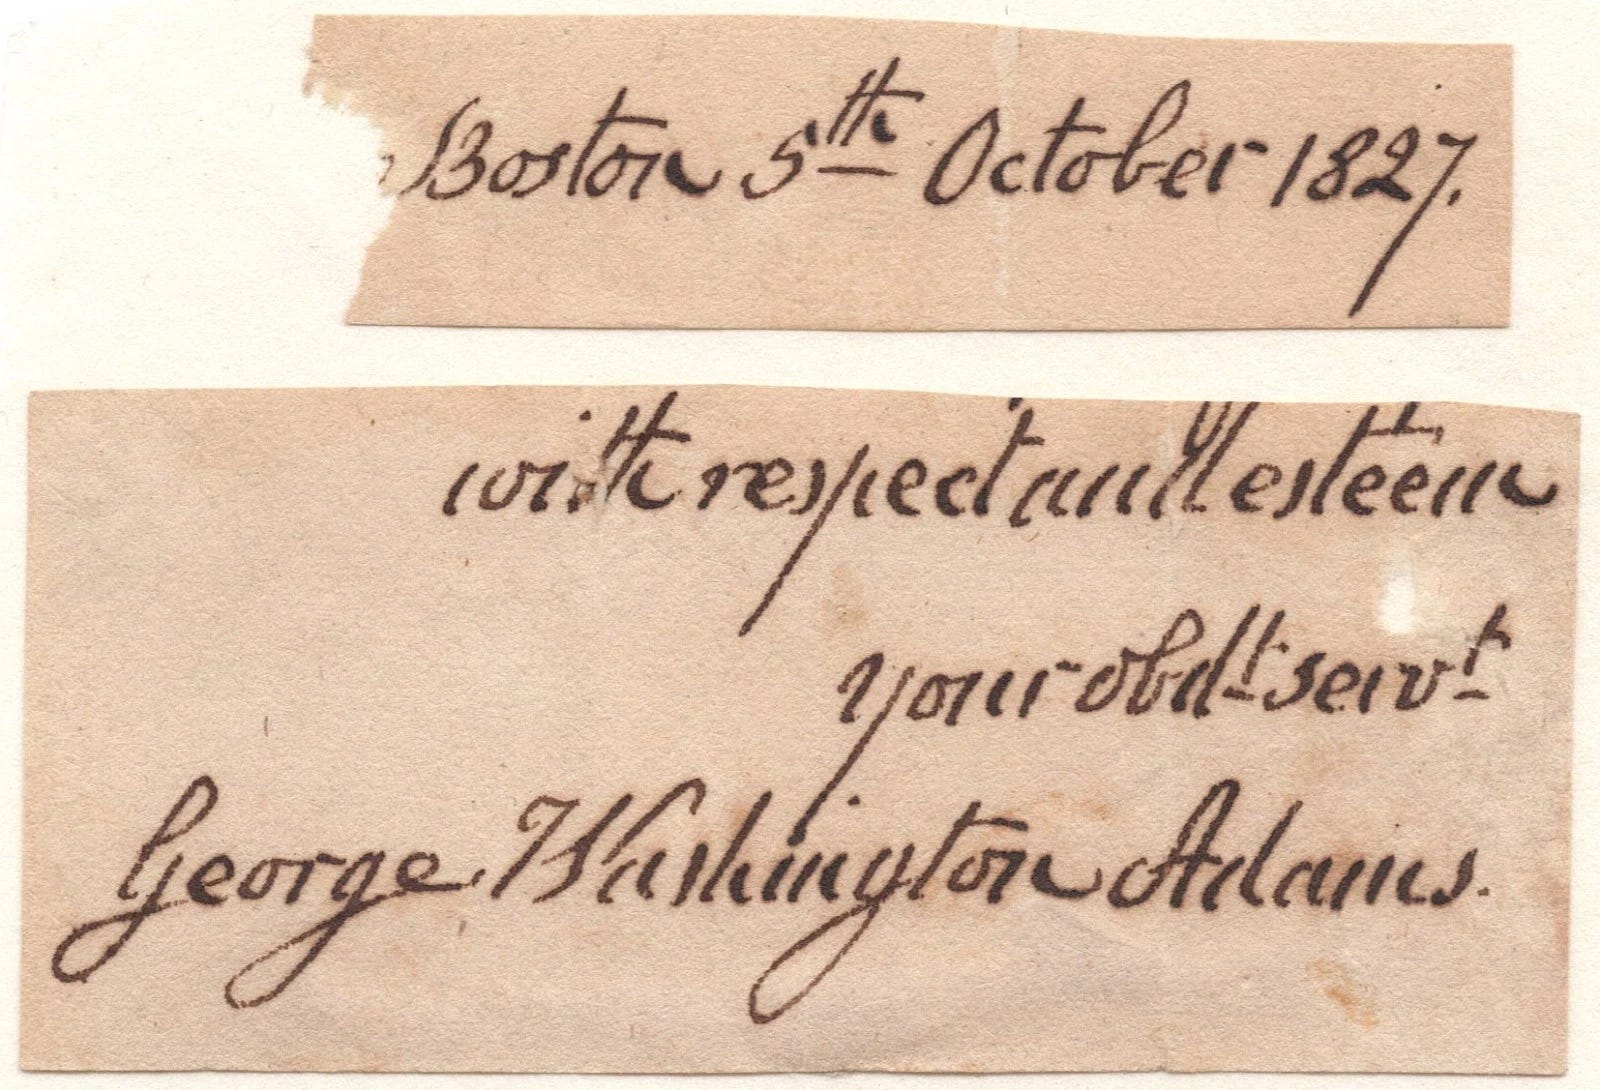 Boston 5th October 1827.
with respect and esteem
your obdt servt
George Washington Adams.